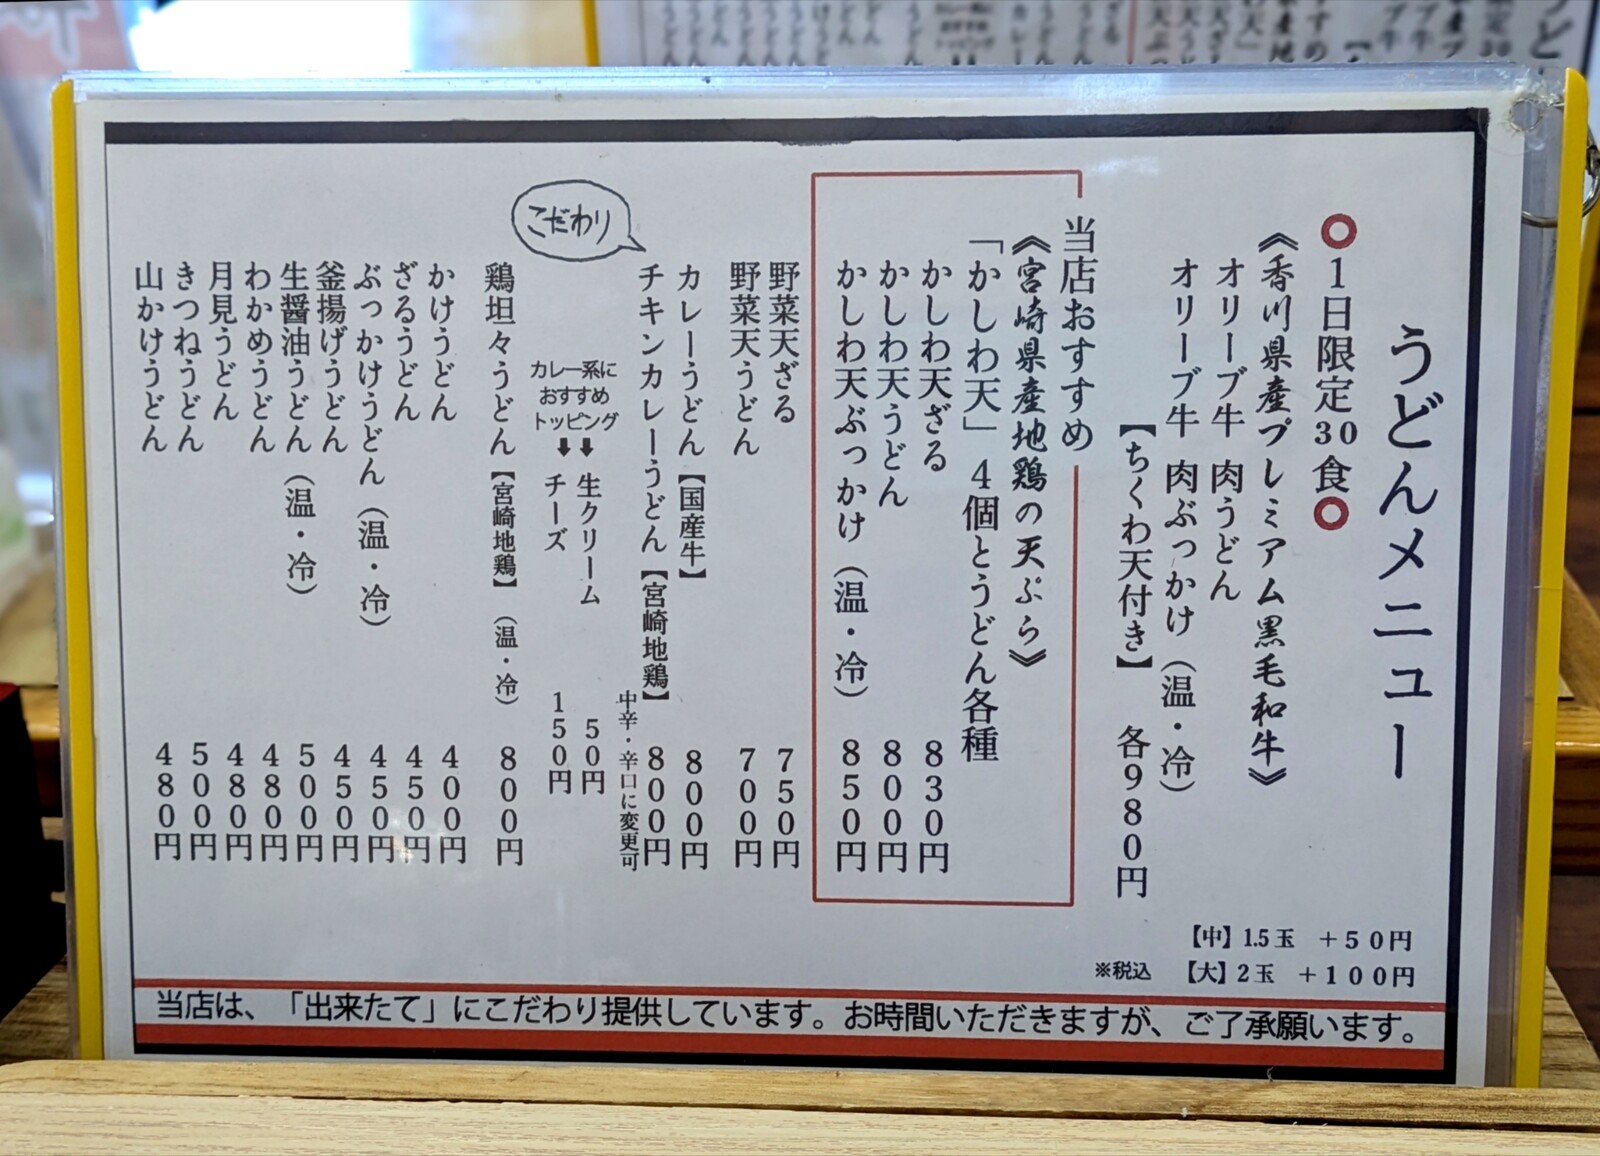 うどんメニュー
⭕1日限定30食⭕
《香川県産プレミアム黒毛和牛》
オリーブ牛 肉うどん
オリーブ牛 肉ぶっかけ（温・冷）
【ちくわ天付き】 各980円
当店おすすめ
《宮崎県産地鶏の天ぷら》
「かしわ天」4個とうどん各種
かしわ天ざる 830円
かしわ天うどん 800円
かしわ天ぶっかけ（温・冷） 850円
野菜天ざる 750円
野菜天うどん 700円
カレーうどん【国産牛】 800円
こだわり
チキンカレーうどん【宮崎地鶏】 800円
中辛・辛口に変更可
カレー系に
おすすめ
トッピング
➡生クリーム 50円
➡チーズ 150円
鶏坦々うどん【宮崎地鶏】（温・冷） 800円
かけうどん 400円
ざるうどん 450円
ぶっかけうどん（温・冷） 450円
釜揚げうどん 450円
生醤油うどん（温・冷） 500円
わかめうどん 480円
月見うどん 480円
きつねうどん 500円
山かけうどん 480円
【中】1.5玉 +50円
※税込 【大】2玉 +100円
当店は、「出来たて」にこだわり提供しています。お時間いただきますが、ご了承願います。